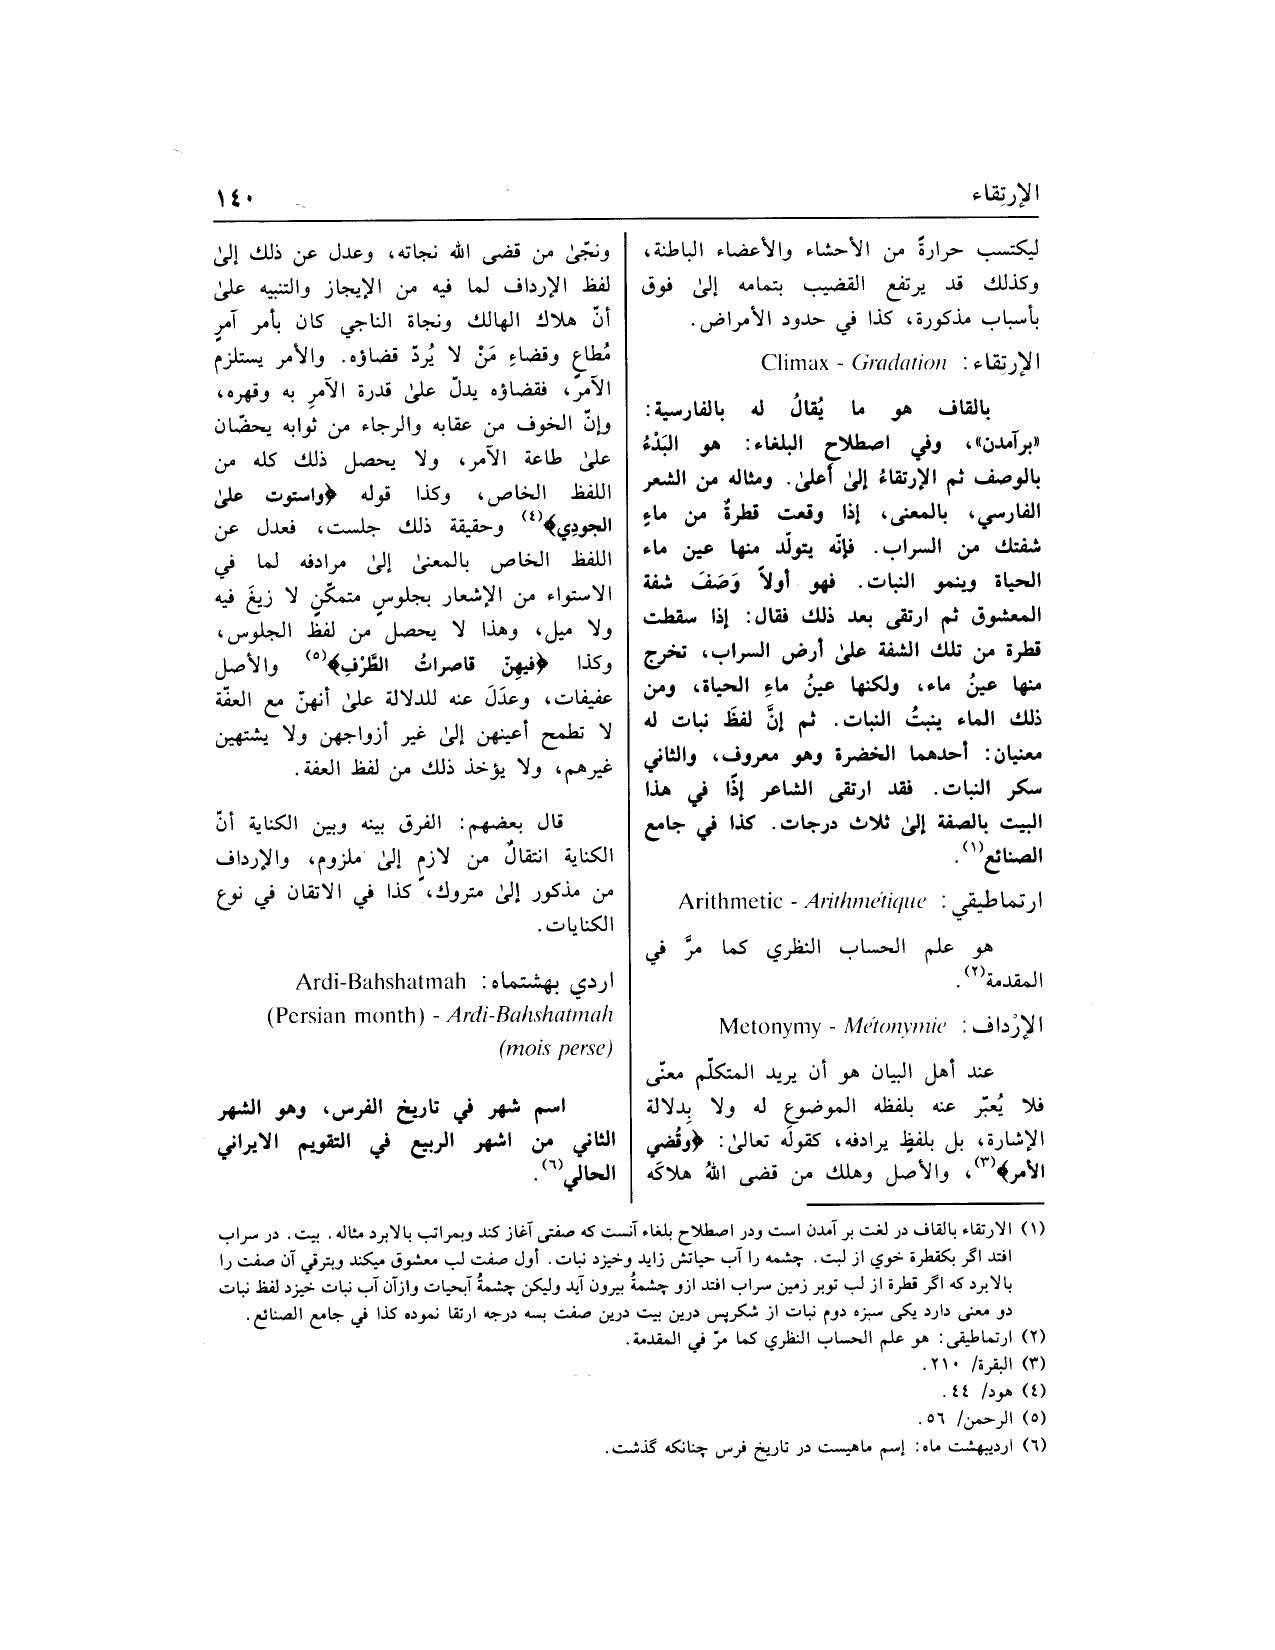 الإرتقاء
١٤٠
ليكتسب حرارةً من الأحشاء والأعضاء الباطنة،
وكذلك قد يرتفع القضيب بتمامه إلىٰ فوق
بأسباب مذكورة، كذا في حدود الأمراض.
الإرتقاء: Climax - Gradation
بالقاف هو ما يُقالُ له بالفارسية:
«برآمدن»، وفي اصطلاح البلغاء: هو البَدْءُ
بالوصف ثم الإرتقاءُ إلىٰ أعلىٰ. ومثاله من الشعر
الفارسي، بالمعنى، إذا وقعت قطرةٌ من ماءِ
شفتك من السراب. فإنّه يتولّد منها عين ماء
الحياة وينمو النبات. فهو أولاً وَصَفَ شفة
المعشوق ثم ارتقى بعد ذلك فقال: إذا سقطت
قطرة من تلك الشفة علىٰ أرض السراب، تخرج
منها عينُ ماء، ولكنها عينُ ماءِ الحياة، ومن
ذلك الماء ينبتُ النبات. ثم إنَّ لفظَ نبات له
معنيان: أحدهما الخضرة وهو معروف، والثاني
سكر النبات. فقد ارتقى الشاعر إذًا في هذا
البيت بالصفة إلىٰ ثلاث درجات. كذا في جامع
الصنائع(١).
ارتماطيقي: Arithmetic - Arithmétique
هو علم الحساب النظري كما مرَّ في
المقدمة(٢).
الإرْداف: Metonymy - Métonymie
عند أهل البيان هو أن يريد المتكلّم معنًى
فلا يُعبّر عنه بلفظه الموضوعِ له ولا بِدلالة
الإشارة، بل بلفظٍ يرادفه، كقوله تعالىٰ: ﴿وقُضي
الأمر﴾(٣)، والأصل وهلك من قضى اللهُ هلاكَه
ونجّىٰ من قضى الله نجاته، وعدل عن ذلك إلىٰ
لفظ الإرداف لما فيه من الإيجاز والتنبيه علىٰ
أنّ هلاك الهالك ونجاة الناجي كان بأمر آمرٍ
مُطاعٍ وقضاءِ مَنْ لا يُردّ قضاؤه. والأمر يستلزم
الآمرَ، فقضاؤه يدلّ علىٰ قدرة الآمرِ به وقهره،
وإنّ الخوف من عقابه والرجاء من ثوابه يحضّان
علىٰ طاعة الآمر، ولا يحصل ذلك كله من
اللفظ الخاص، وكذا قوله ﴿واستوت علىٰ
الجودي﴾(٤) وحقيقة ذلك جلست، فعدل عن
اللفظ الخاص بالمعنىٰ إلىٰ مرادفه لما في
الاستواء من الإشعار بجلوسٍ متمكّنٍ لا زيغَ فيه
ولا ميل، وهذا لا يحصل من لفظ الجلوس،
وكذا ﴿فيهنّ قاصراتُ الطَّرْفِ﴾(٥) والأصل
عفيفات، وعدَلَ عنه للدلالة علىٰ أنهنّ مع العفّة
لا تطمح أعينهن إلىٰ غير أزواجهن ولا يشتهين
غيرهم، ولا يؤخذ ذلك من لفظ العفة.
قال بعضهم: الفرق بينه وبين الكناية أنّ
الكناية انتقالٌ من لازم إلىٰ ملزوم، والإرداف
من مذكور إلىٰ متروك، كذا في الاتقان في نوع
الكنايات.
اردي بهشتماه: Ardi-Bahshatmah
(Persian month) - Ardi-Bahshatmah
(mois perse)
اسم شهر في تاريخ الفرس، وهو الشهر
الثاني من اشهر الربيع في التقويم الايراني
الحالي(٦).
(١) الارتقاء بالقاف در لغت بر آمدن است ودر اصطلاح بلغاء آنست كه صفتى آغاز كند وبمراتب بالابرد مثاله. بيت. در سراب
افتد اگر بكقطرة خوي از لبت. چشمه را آب حياتش زايد وخيزد نبات. أول صفت لب معشوق ميكند وبترقي آن صفت را
بالابرد كه اگر قطرة از لب توبر زمين سراب افتد ازو چشمهٔ بيرون آيد وليكن چشمهٔ آبحيات وازآن آب نبات خيزد لفظ نبات
دو معنى دارد يكى سبزه دوم نبات از شكرپس درين بيت درين صفت بسه درجه ارتقا نموده كذا في جامع الصنائع.
(٢) ارتماطيقى: هو علم الحساب النظري كما مرّ في المقدمة.
(٣) البقرة/ ٢١٠.
(٤) هود/ ٤٤.
(٥) الرحمن/ ٥٦.
(٦) ارديبهشت ماه: إسم ماهيست در تاريخ فرس چنانكه گذشت.